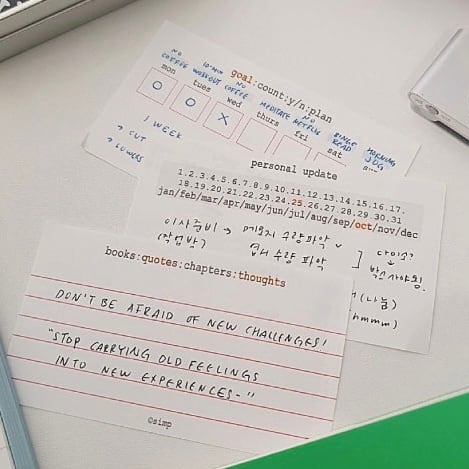 goal:count:y/n:plan
NO COFFEE
WORKOUT
NO COFFEE
MEDITATE
NO NETFLIX
BINGE READ
MORNING JOG
mon
tues
wed
thurs
fri
sat
O
O
X
1 WEEK
→ CUT
→ LOWERS
personal update
1.2.3.4.5.6.7.8.9.10.11.12.13.14.15.16.17.
18.19.20.21.22.23.24.25.26.27.28.29.30.31
jan/feb/mar/apr/may/jun/jul/aug/sep/oct/nov/dec
이사준비 → 메모지 수량파악 ✓
(작업방)
엽서 수량 파악
다이소?
↓
박스사야됨.
(나눔)
hmmm)
books:quotes:chapters:thoughts
DON'T BE AFRAID OF NEW CHALLENGES!
"STOP CARRYING OLD FEELINGS
INTO NEW EXPERIENCES-"
©simp